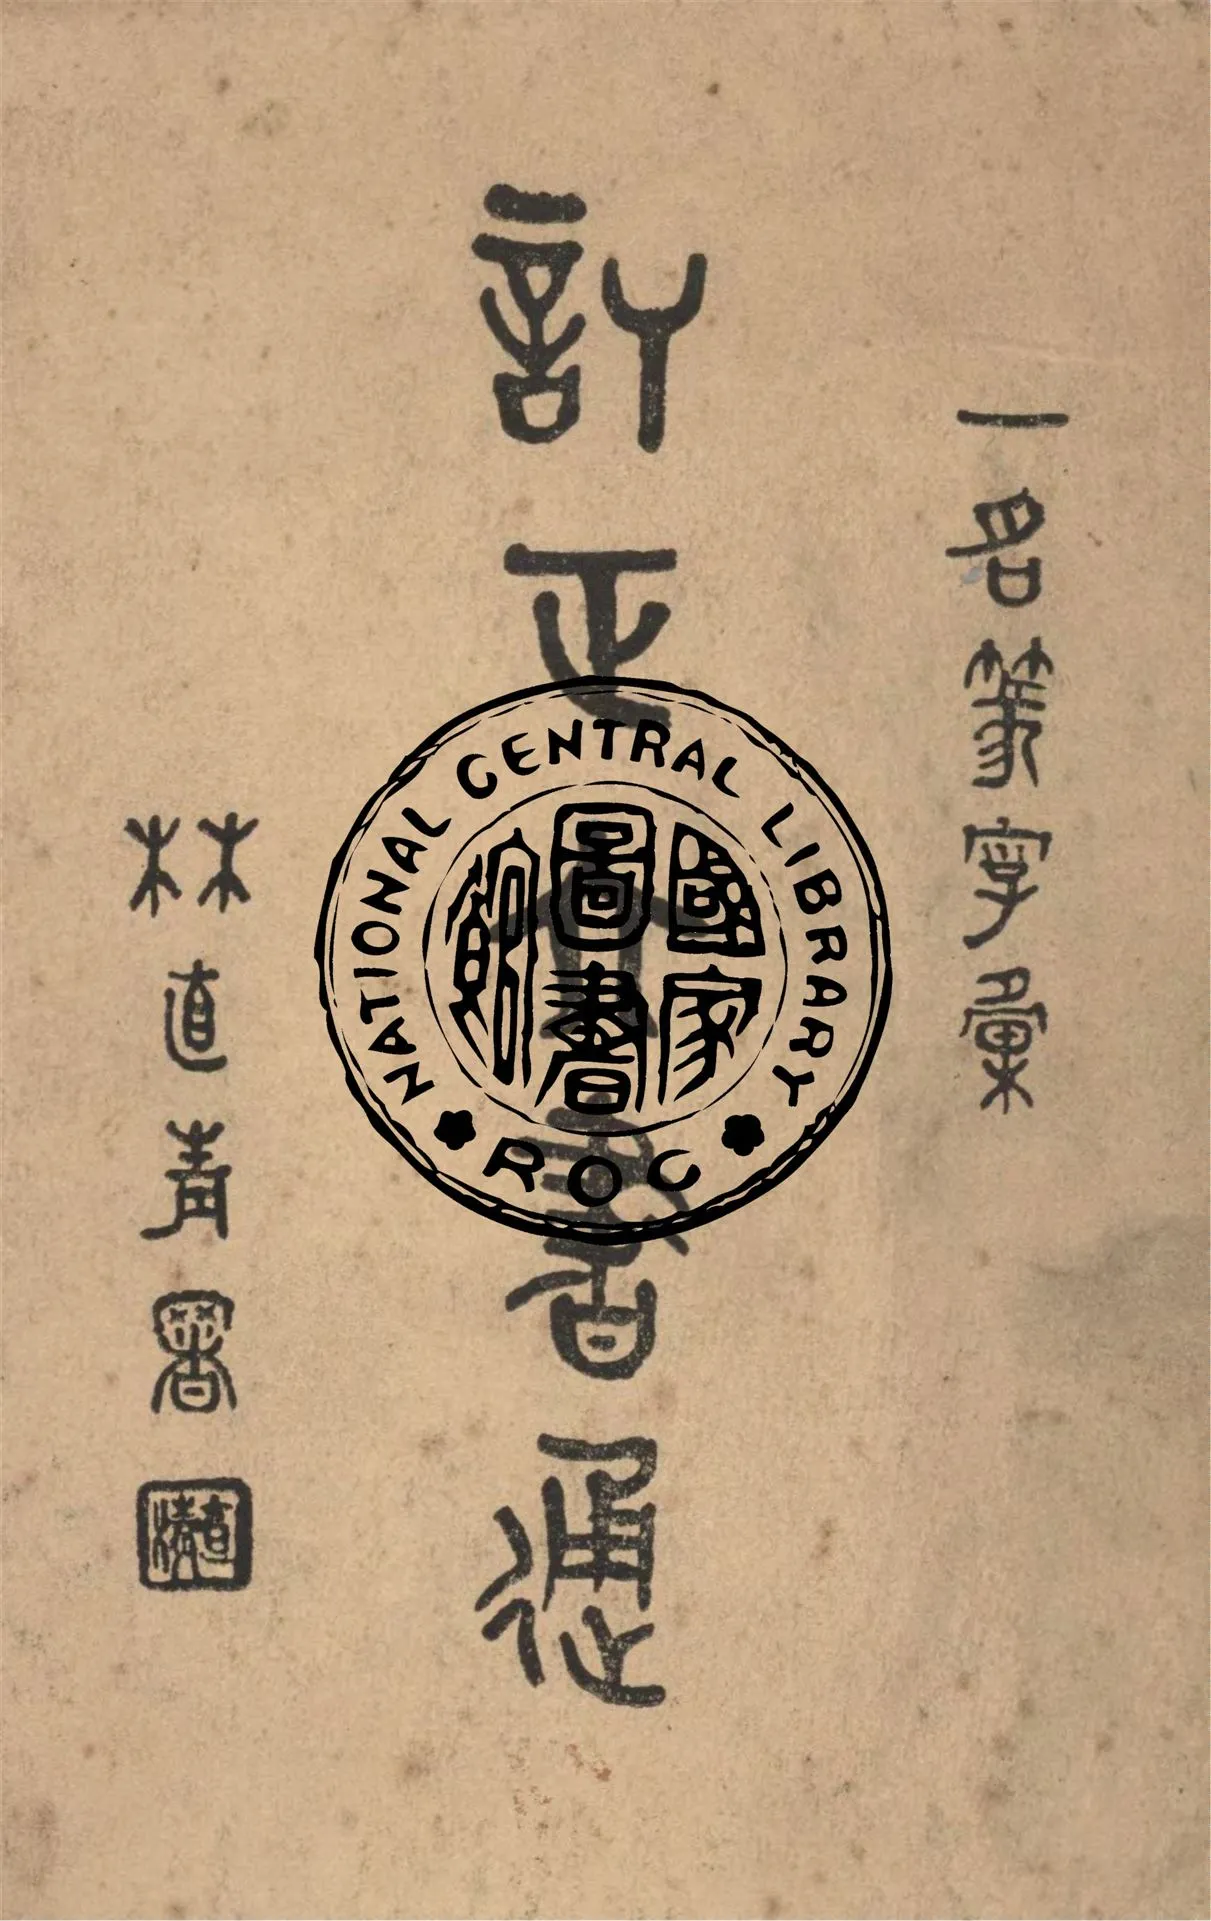 一名篆字彙
訂正六書通
林直青署
NATIONAL CENTRAL LIBRARY
ROC
國家
圖書
館